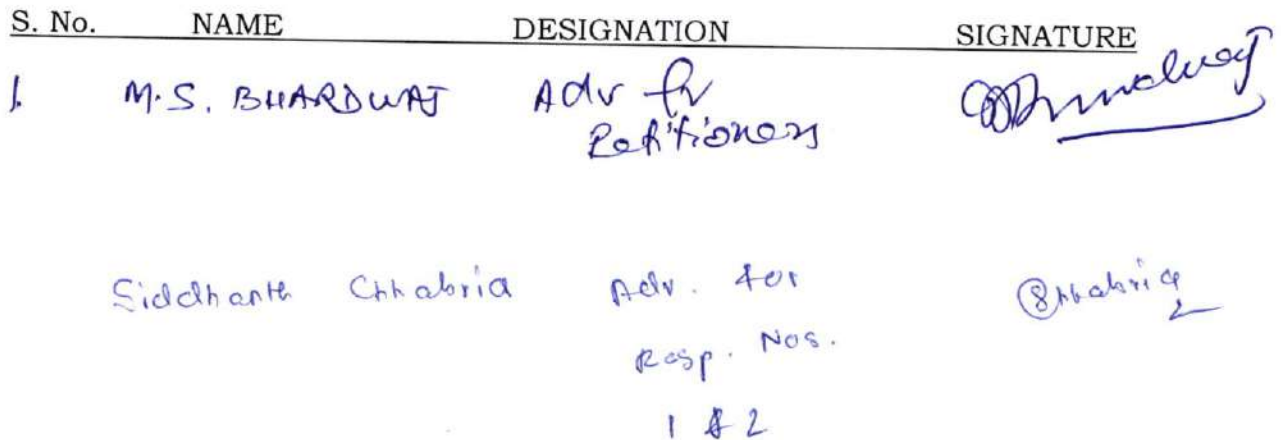 S. No. NAME DESIGNATION SIGNATURE
1. M.S. BHARDWAJ Adv for
Petitioners
Bhardwaj
Siddhanth Chhabria Adv. for
Resp. Nos.
1 & 2
Chhabria